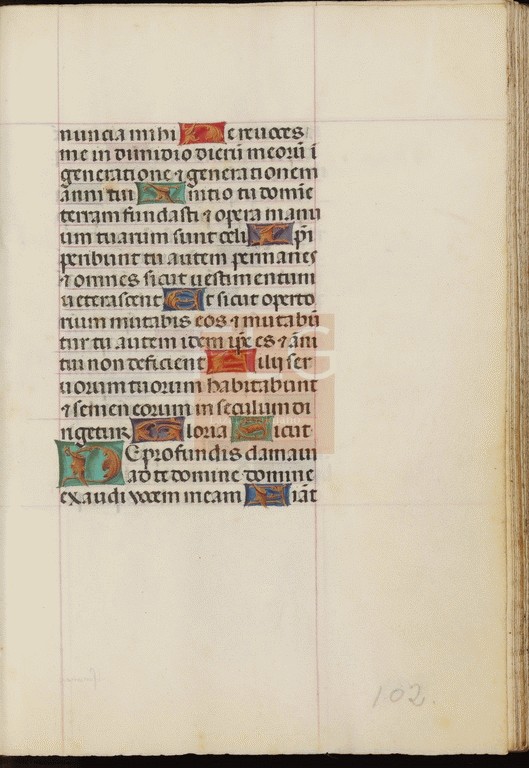 nuncia michi Ne reuoces
me in dimidio dierū meorū ī
generatione ⁊ generationem
anni tui Initio tu domine
terram fundasti ⁊ opera manu
um tuarum sunt celi Ipi
peribunt tu autem permanes
⁊ omnes sicut uestimentum
ueterascent Et sicut operto
rium mutabis eos ⁊ mutabū
tur tu autem idem ipse es ⁊ āni
tui non deficient Filij ser
uorum tuorum habitabunt
⁊ semen eorum in seculum di
rigetur Gloria Sicut
De profundis clamaui
ad te domine domine
exaudi vocem meam Fiāt
102.